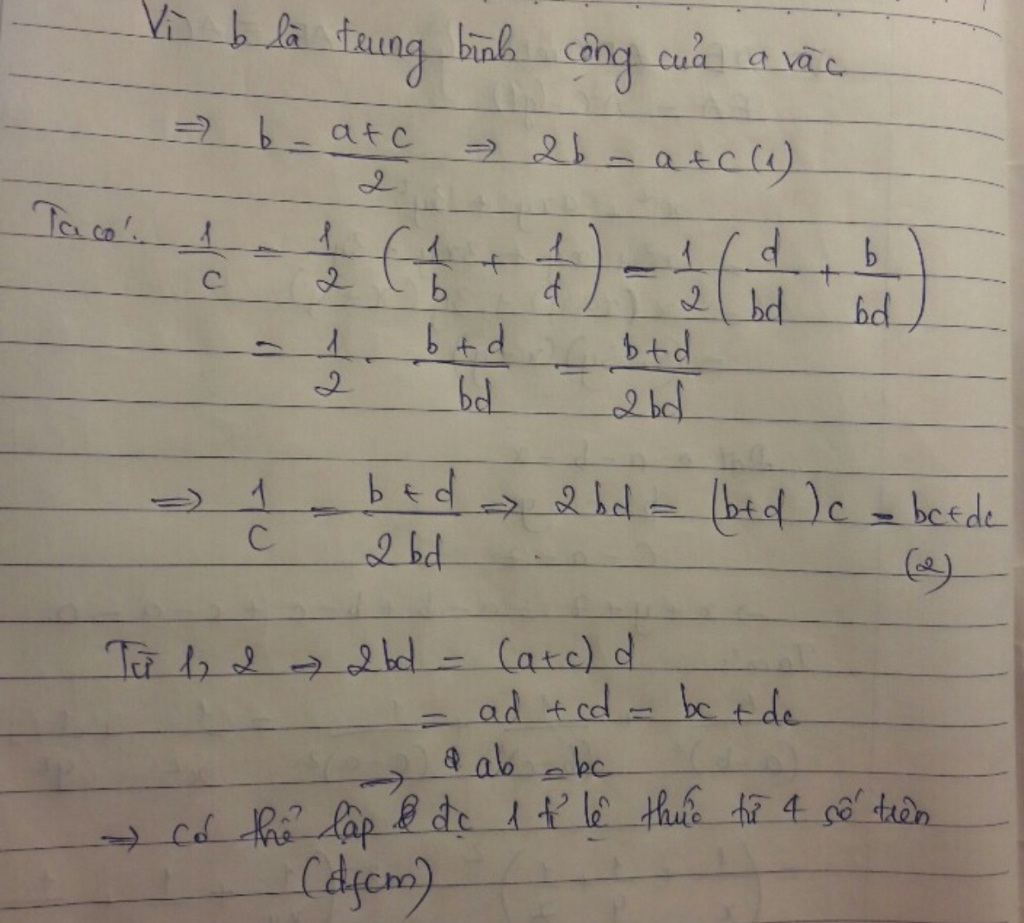 Vì b là trung bình cộng của a và c
⇒ b = a+c/2 ⇒ 2b = a+c (1)
Ta có: 1/c = 1/2 (1/b + 1/d) = 1/2 (d/bd + b/bd)
= 1/2 . b+d/bd = b+d/2bd
⇒ 1/c = b+d/2bd ⇒ 2bd = (b+d)c = bc+dc
(2)
Từ 1, 2 → 2bd = (a+c) d
= ad + cd = bc + dc
→ ab = bc
→ có thể lập đc 1 tỉ lệ thức từ 4 số trên
(đfcm)